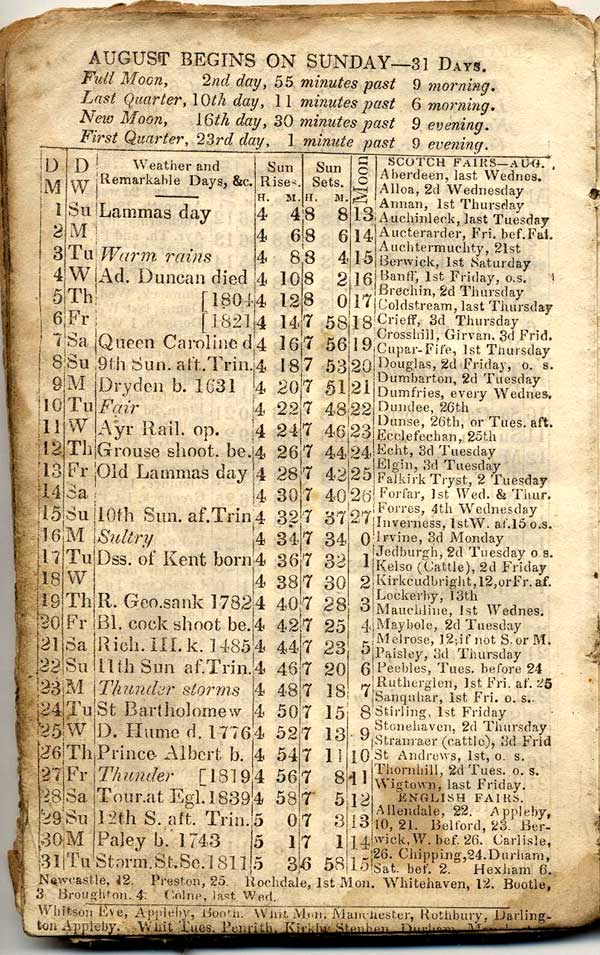 AUGUST BEGINS ON SUNDAY—31 DAYS.
Full Moon, 2nd day, 55 minutes past 9 morning.
Last Quarter, 10th day, 11 minutes past 6 morning.
New Moon, 16th day, 30 minutes past 9 evening.
First Quarter, 23rd day, 1 minute past 9 evening.
D M D W Weather and Remarkable Days, &c. Sun Rises. H. M. Sun Sets. H. M. Moon
1 Su Lammas day 4 4 8 8 13
2 M 4 6 8 6 14
3 Tu Warm rains 4 8 8 4 15
4 W Ad. Duncan died 4 10 8 2 16
5 Th [1804 4 12 8 0 17
6 Fr [1821 4 14 7 58 18
7 Sa Queen Caroline d 4 16 7 56 19
8 Su 9th Sun. aft. Trin. 4 18 7 53 20
9 M Dryden b. 1631 4 20 7 51 21
10 Tu Fair 4 22 7 48 22
11 W Ayr Rail. op. 4 24 7 46 23
12 Th Grouse shoot. be. 4 26 7 44 24
13 Fr Old Lammas day 4 28 7 42 25
14 Sa 4 30 7 40 26
15 Su 10th Sun. af. Trin 4 32 7 37 27
16 M Sultry 4 34 7 34 0
17 Tu Dss. of Kent born 4 36 7 32 1
18 W 4 38 7 30 2
19 Th R. Geo. sank 1782 4 40 7 28 3
20 Fr Bl. cock shoot be. 4 42 7 25 4
21 Sa Rich. III. k. 1485 4 44 7 23 5
22 Su 11th Sun af. Trin. 4 46 7 20 6
23 M Thunder storms 4 48 7 18 7
24 Tu St Bartholomew 4 50 7 15 8
25 W D. Hume d. 1776 4 52 7 13 9
26 Th Prince Albert b. 4 54 7 11 10
27 Fr Thunder [1819 4 56 7 8 11
28 Sa Tour. at Egl. 1839 4 58 7 5 12
29 Su 12th S. aft. Trin. 5 0 7 3 13
30 M Paley b. 1743 5 1 7 1 14
31 Tu Storm. St. Sc. 1811 5 3 6 58 15
SCOTCH FAIRS—AUG.
Aberdeen, last Wednes.
Alloa, 2d Wednesday
Annan, 1st Thursday
Auchinleck, last Tuesday
Aucterarder, Fri. bef. Fal.
Auchtermuchty, 21st
Berwick, 1st Saturday
Banff, 1st Friday, o.s.
Brechin, 2d Thursday
Coldstream, last Thursday
Crieff, 3d Thursday
Crosshill, Girvan. 3d Frid.
Cupar-Fife, 1st Thursday
Douglas, 2d Friday, o. s.
Dumbarton, 2d Tuesday
Dumfries, every Wednes.
Dundee, 26th
Dunse, 26th, or Tues. aft.
Ecclefechan, 25th
Echt, 3d Tuesday
Elgin, 3d Tuesday
Falkirk Tryst, 2 Tuesday
Forfar, 1st Wed. & Thur.
Forres, 4th Wednesday
Inverness, 1st W. af. 15 o.s.
Irvine, 3d Monday
Jedburgh, 2d Tuesday o s.
Kelso (Cattle), 2d Friday
Kirkcudbright, 12, or Fr. af.
Lockerby, 13th
Mauchline, 1st Wednes.
Maybole, 2d Tuesday
Melrose, 12, if not S. or M.
Paisley, 3d Thursday
Peebles, Tues. before 24
Rutherglen, 1st Fri. af. 25
Sanquhar, 1st Fri. o. s.
Stirling, 1st Friday
Stonehaven, 2d Thursday
Stranraer (cattle), 3d Frid
St Andrews, 1st, o. s.
Thornhill, 2d Tues. o. s.
Wigtown, last Friday.
ENGLISH FAIRS.
Allendale, 22. Appleby,
10, 21. Belford, 23. Ber-
wick, W. bef. 26. Carlisle,
26. Chipping, 24. Durham,
Sat. bef. 2. Hexham 6.
Newcastle, 12. Preston, 25. Rochdale, 1st Mon. Whitehaven, 12. Bootle,
3 Broughton. 4. Colne, last Wed.
Whitson Eve, Appleby, Booth. Whit Mon. Manchester, Rothbury, Darling-
ton Appleby. Whit Tues. Penrith, Kirkby Stephen, Durham,